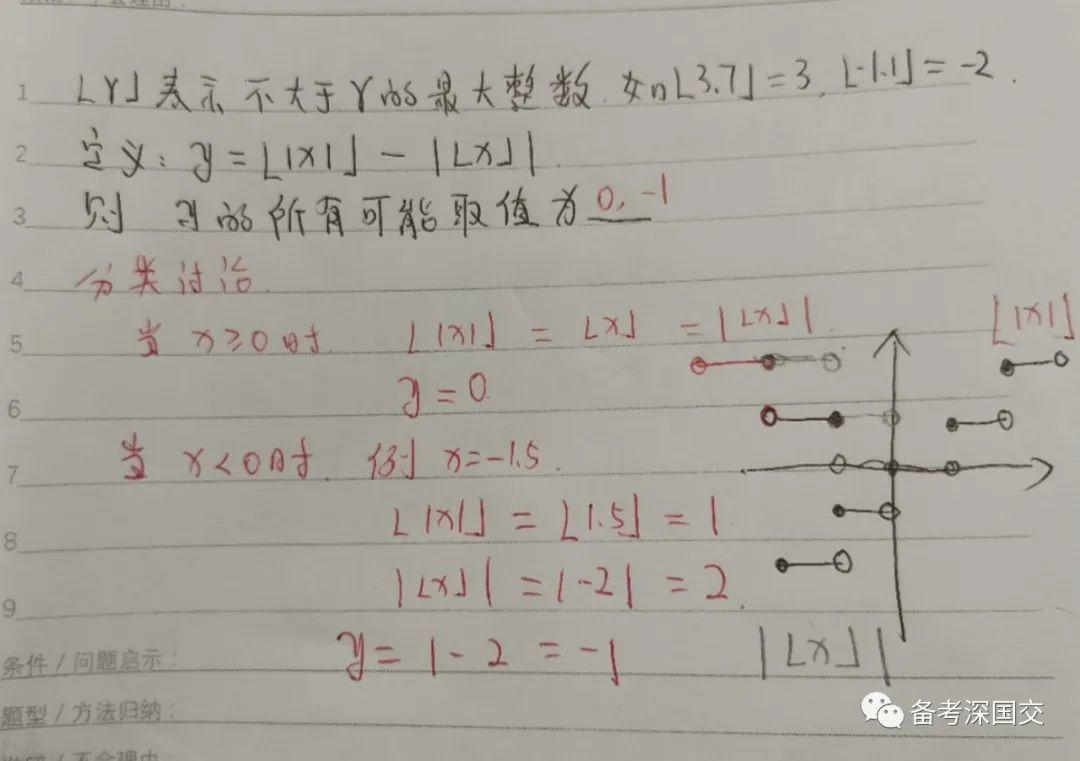 1 ⌊r⌋表示不大于r的最大整数.如⌊3.7⌋=3,⌊-1.1⌋=-2.
2 定义:y=⌊|x|⌋-|⌊x⌋|.
3 则 y的所有可能取值为 0,-1
4 分类讨论.
5 当 x≥0时. ⌊|x|⌋ = ⌊x⌋ = |⌊x⌋|. ⌊|x|⌋
6 y=0.
7 当 x<0时. 例 x=-1.5.
8 ⌊|x|⌋ = ⌊1.5⌋ = 1.
9 |⌊x⌋| = |-2| = 2.
条件/问题启示: y= 1-2 = -1 |⌊x⌋|
题型/方法归纳:
备考深国交